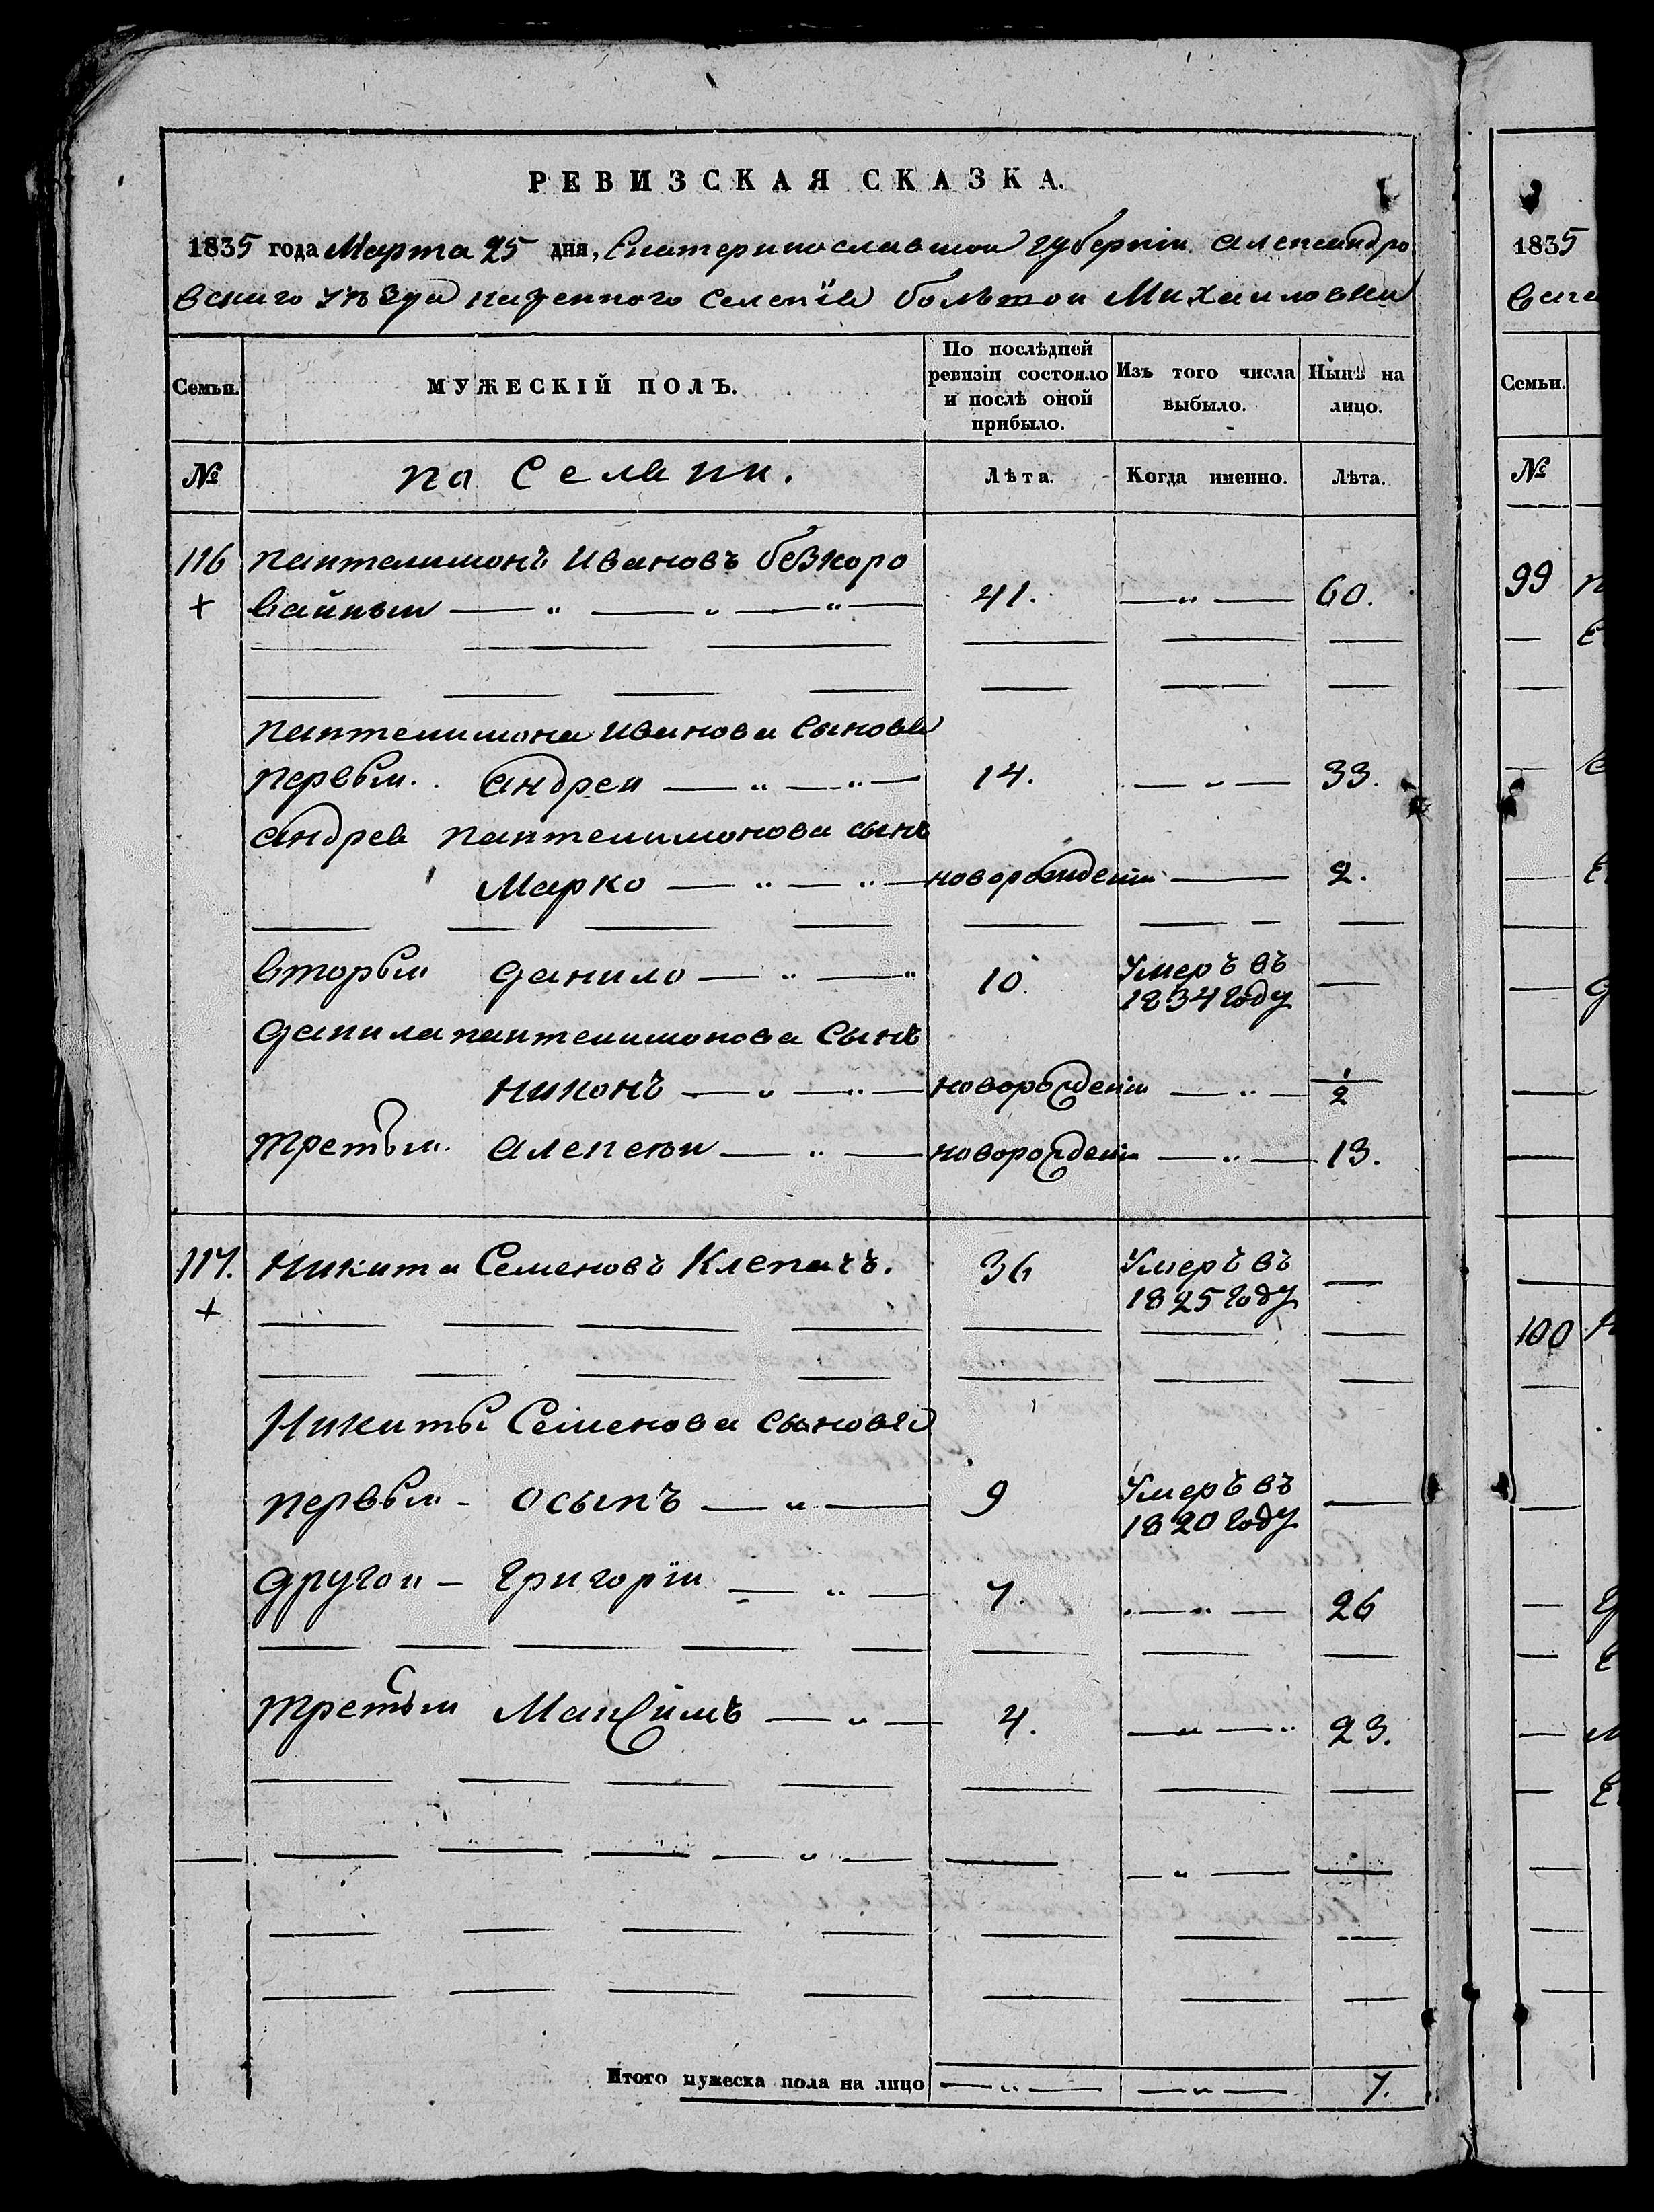 РЕВИЗСКАЯ СКАЗКА.
1835 года Марта 25 дня, Екатеринославской губернiи Александро
вскаго уѣзда казенного Селенiя большой Михайловки
Семьи. МУЖЕСКIЙ ПОЛЪ. По послѣдней ревизiи состояло и послѣ оной прибыло. Изъ того числа выбыло. Нынѣ на лицо.
№ Лѣта. Когда именно. Лѣта.
116 Пантелимонъ Ивановъ безкоро
+ вайный 41. 60.
Пантелимона Иванова Сыновя
первый. Андрей 14. 33.
Андрея Пантелимонова сынъ
Марко новорожденъ 2.
вторый Данило 10. Умеръ въ 1834 году
Данила пантелимонова Сынъ
Никонъ новорожденъ 1/2
третьй. Алексей новорожденъ 13.
117. Никита Семеновъ Клепачъ. 36 Умеръ въ 1825 году
+
Никиты Семенова сыновя
первый Осыпъ 9 Умеръ въ 1820 году
другой Григорiй 7. 26
третьй Максимъ 4. 23.
Итого мужеска пола на лицо 7.
1835
Семьи.
№
99
100